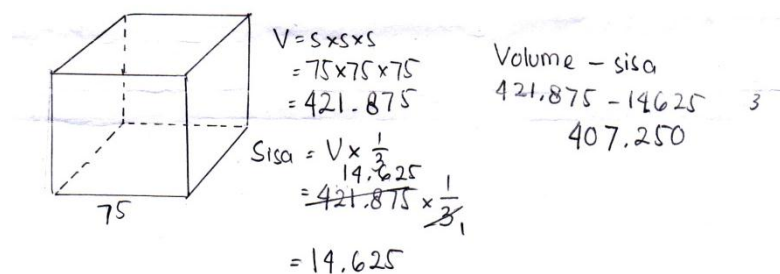 75
V = s x s x s
= 75 x 75 x 75
= 421.875
Sisa = V x 1/3
14.625
= 421.875 x 1/3 1
= 14.625
Volume - sisa
421.875 - 14625
407.250
3